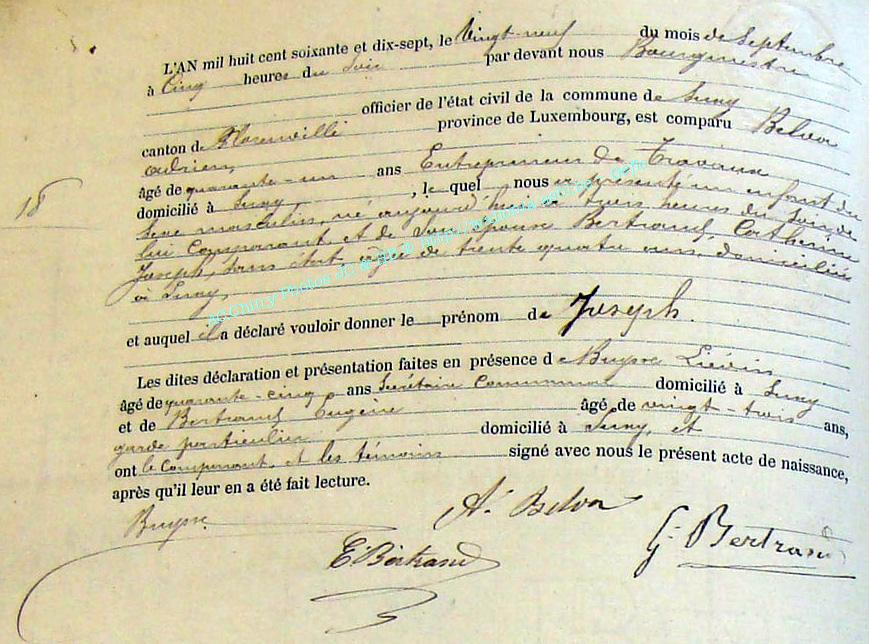 L'AN mil huit cent soixante et dix-sept, le Vingt-neuf du mois de Septembre
à Cinq heures du Soir par devant nous Bourgmestre
officier de l'état civil de la commune de Suny
canton de Florenville province de Luxembourg, est comparu Belva
Adrien,
âgé de quarante-un ans Entrepreneur de Travaux
domicilié à Suny, , le quel nous a présenté un enfant du
18
Sexe masculin, né aujourd'hui à trois heures du Soir, de
lui Comparant et de Son épouse Bertrand, Catherine
Joseph, Sans état, âgée de trente quatre ans, domiciliée
à Suny,
et auquel il a déclaré vouloir donner le prénom de Joseph.
Les dites déclaration et présentation faites en présence de Buysse Liévin
âgé de quarante-cinq ans Secrétaire Communal domicilié à Suny
et de Bertrand Eugène âgé de vingt-trois ans,
garde particulier domicilié à Suny, et
ont le Comparant et les témoins signé avec nous le présent acte de naissance,
après qu'il leur en a été fait lecture.
Buysse A. Belva
E Bertrand G. Bertrand